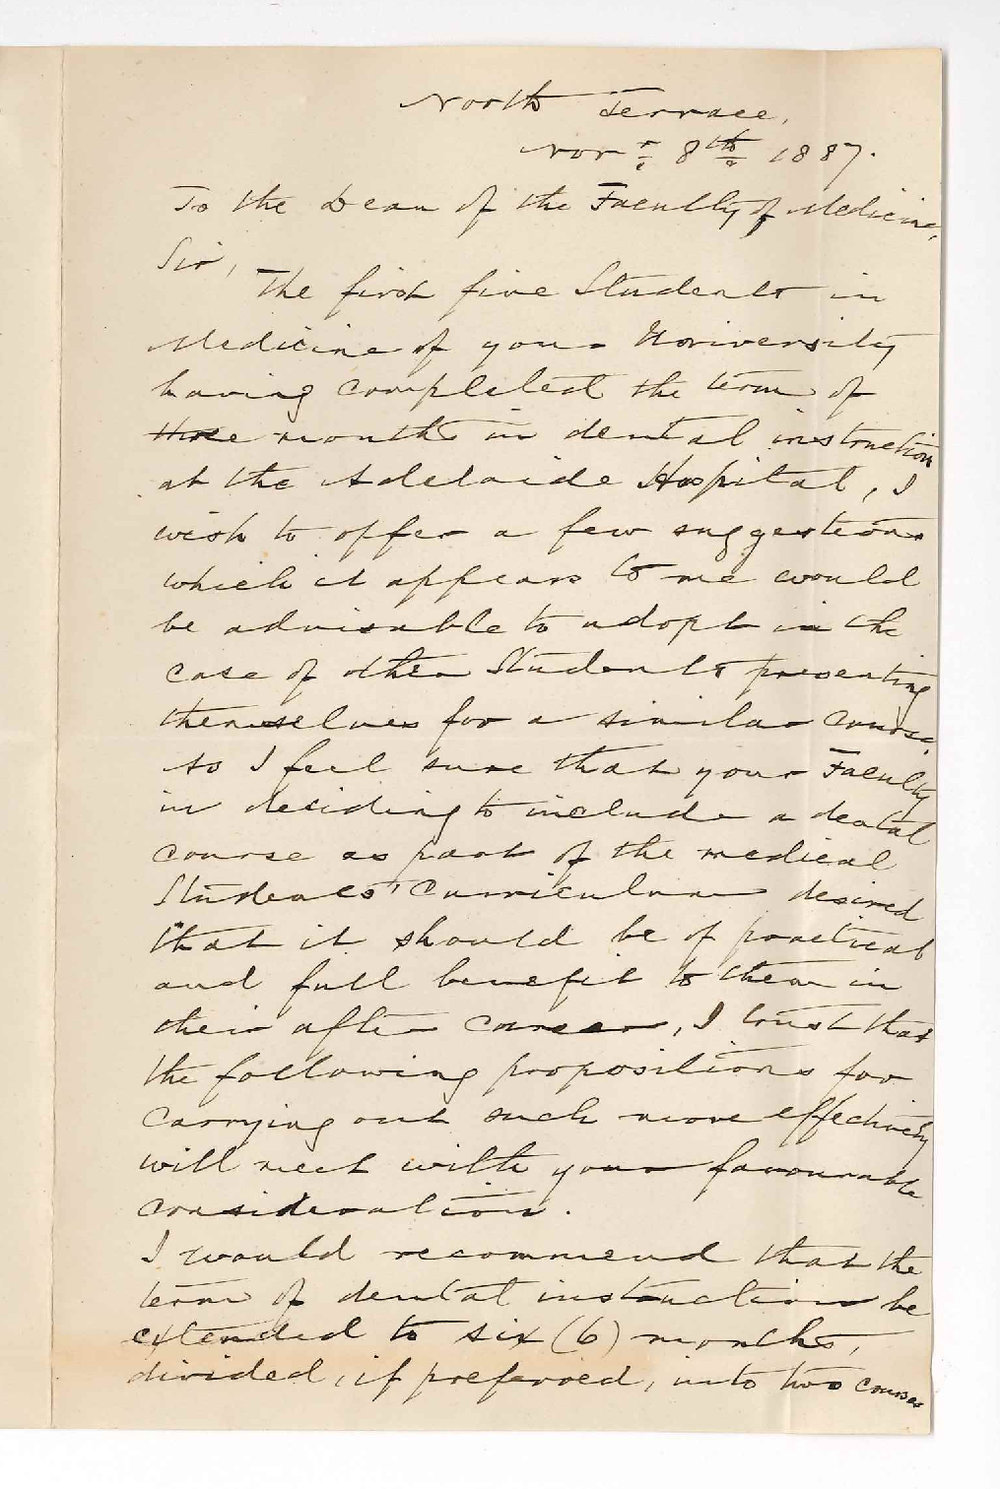 North Terrace,
Novr 8th 1887.
To the Dean of the Faculty of Medicine,
Sir,
The first five Students in
Medicine of your University
having completed the term of
three months in dental instruction
at the Adelaide Hospital, I
wish to offer a few suggestions
which it appears to me would
be advisable to adopt in the
case of other Students presenting
themselves for a similar course.
As I feel sure that your Faculty
in deciding to include a dental
course as part of the medical
Students' Curriculum desired
that it should be of practical
and full benefit to them in
their after career, I trust that
the following propositions for
carrying out such more effectively
will meet with your favourable
consideration.
I would recommend that the
term of dental instruction be
extended to six (6) months,
divided, if preferred, into two courses